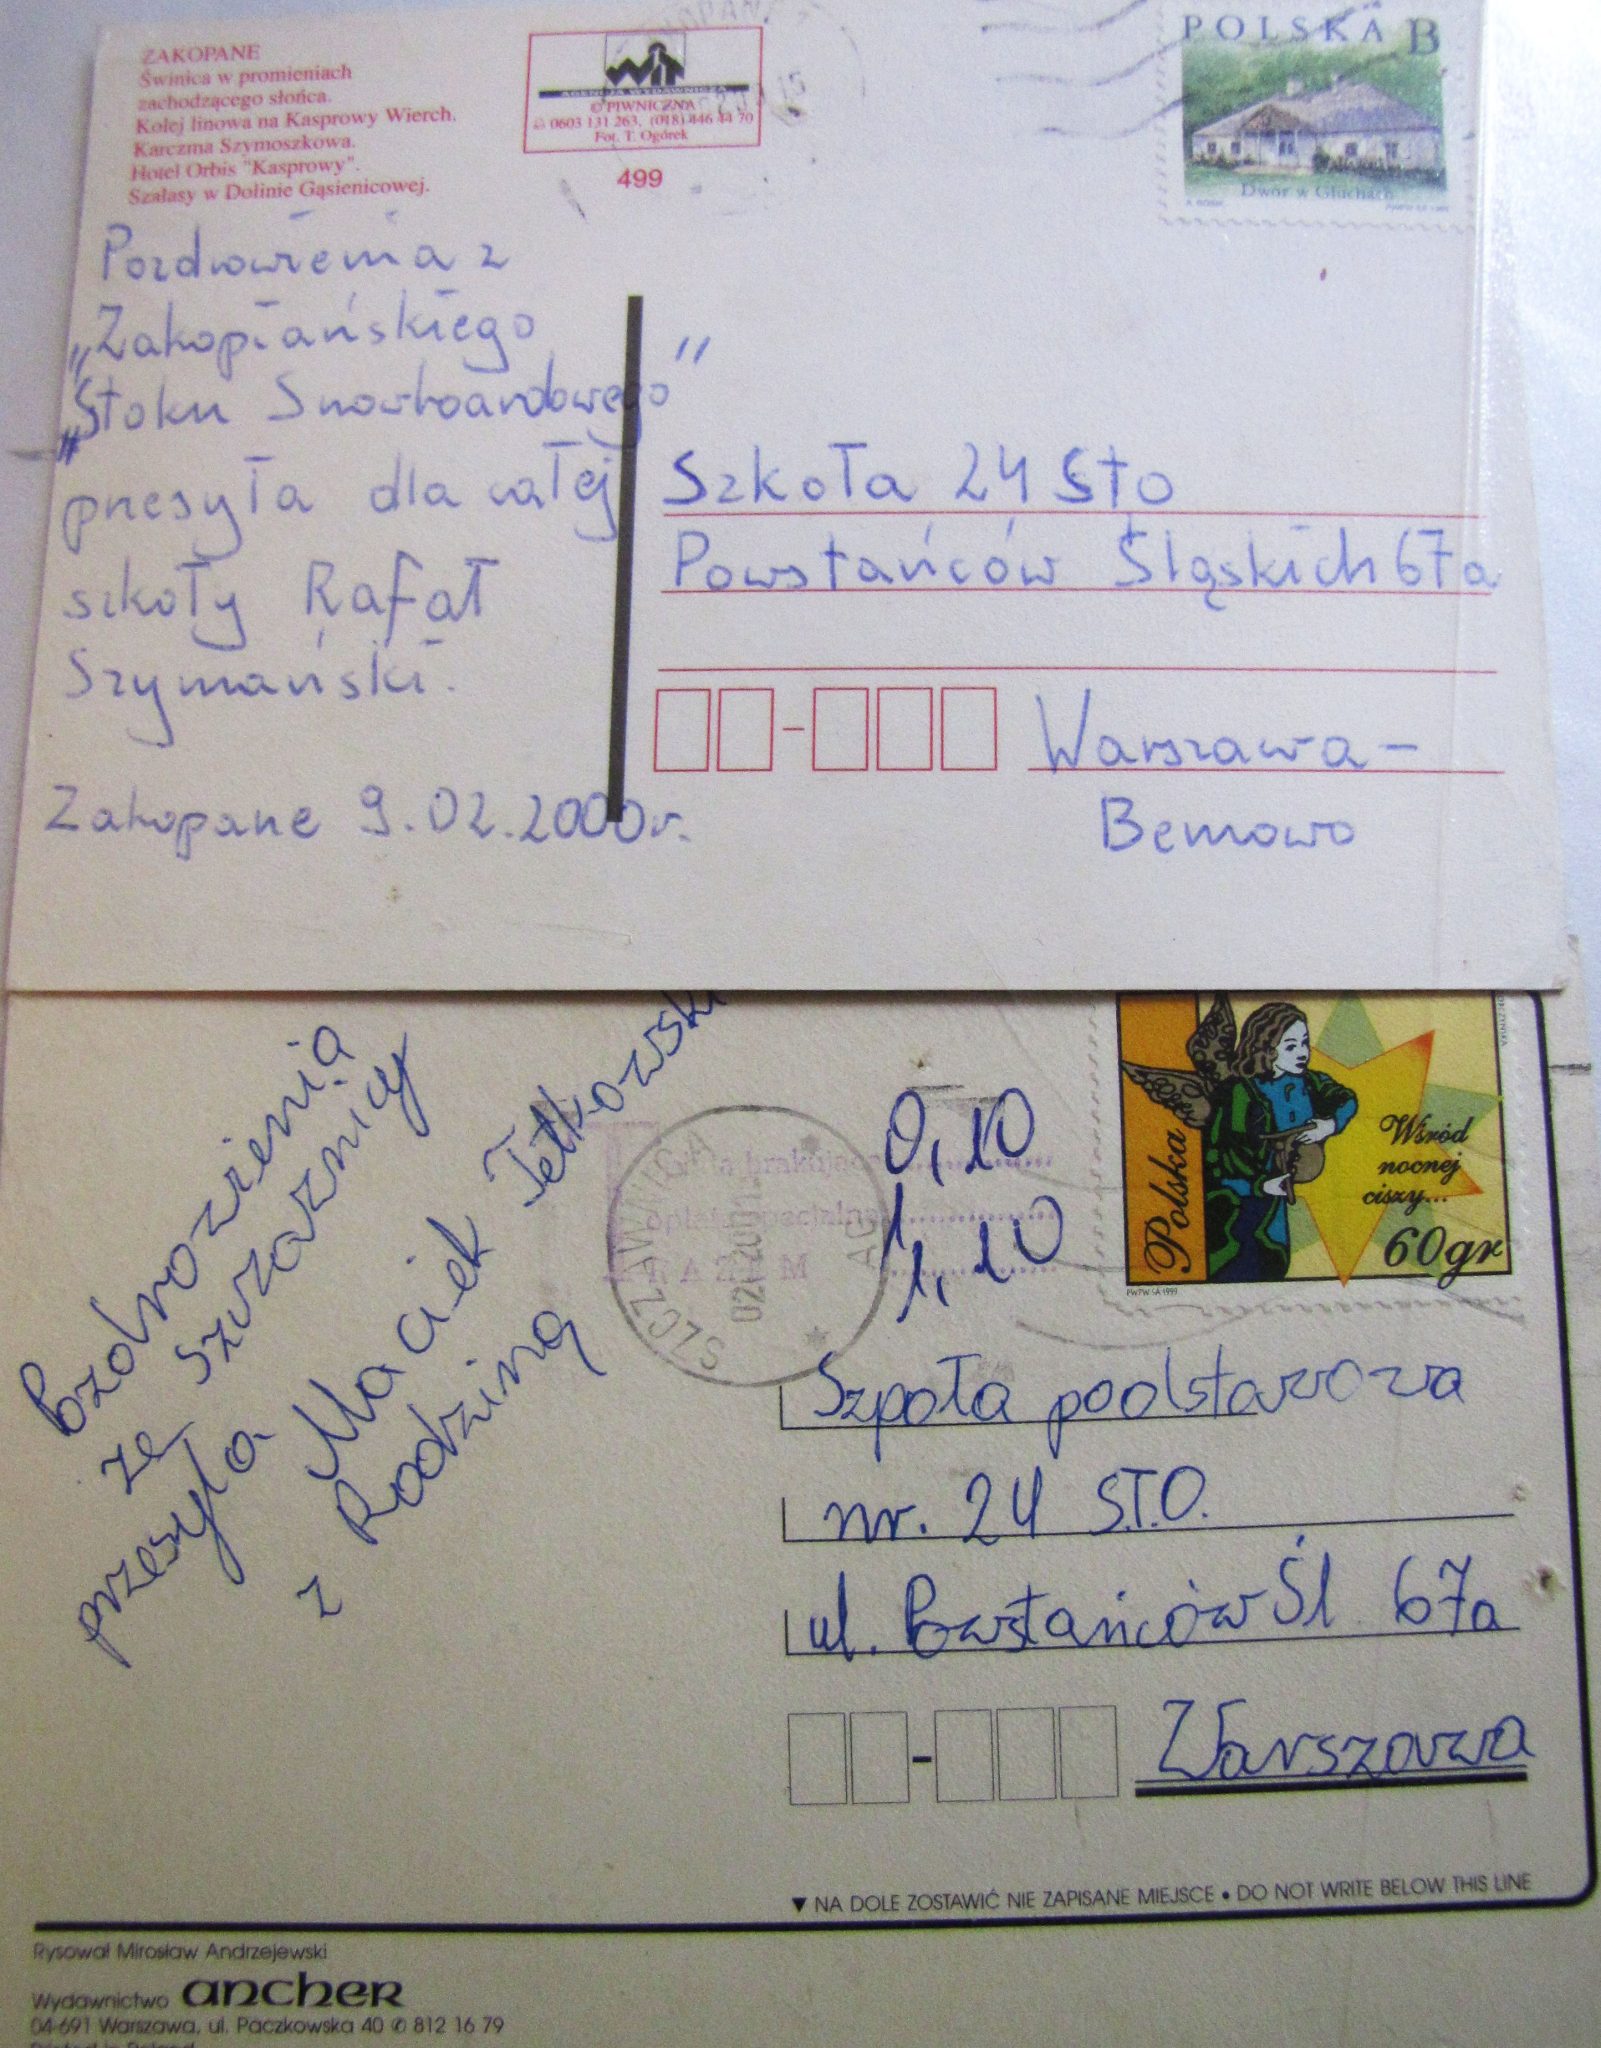 ZAKOPANE
Świnica w promieniach
zachodzącego słońca.
Kolej linowa na Kasprowy Wierch.
Karczma Szymoszkowa.
Hotel Orbis "Kasprowy".
Szałasy w Dolinie Gąsienicowej.
WiT
AGENCJA WYDAWNICZA
© PIWNICZNA
0603 131 263, (018) 446 44 70
Fot. T. Ogórek
499
POLSKA B
Dwór w Głuchach
Pozdrowienia z
„Zakopiańskiego
„Stoku Snowboardowego”
przesyła dla całej
szkoły Rafał
Szymański.
Zakopane 9.02.2000r.
Szkoła 24 Sto
Powstańców Śląskich 67a
Warszawa-
Bemowo
Pozdrowienia
ze Szczawnicy
przesyła Maciek
z Rodziną
SZCZAWNICA
0,10
1,10
Polska
Wśród
nocnej
ciszy...
60gr
PWPW SA 1999
Szpoła podstawowa
nr. 24 S.T.O.
ul. Powstańców Śl 67a
Warszawa
▼ NA DOLE ZOSTAWIĆ NIE ZAPISANE MIEJSCE • DO NOT WRITE BELOW THIS LINE
Rysował Mirosław Andrzejewski
Wydawnictwo ancher
04-691 Warszawa, ul. Paczkowska 40 ✆ 812 16 79